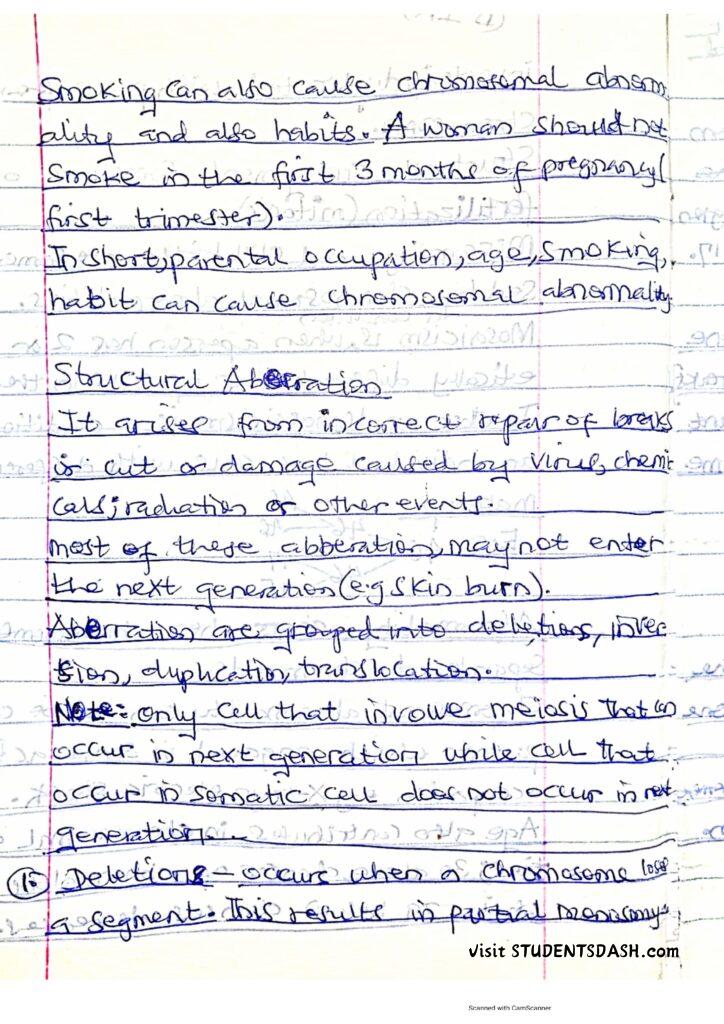 Smoking can also cause chromosomal abnorm
ality and also habits. A woman should not
Smoke in the first 3 months of pregnancy(
first trimester).
In short, parental occupation, age, smoking,
habit can cause chromosomal abnormality
Structural Aberration
It arises from incorrect repair of breaks
or cut or damage caused by virus, chemi
cals, radiation or other events.
most of these abberation, may not enter
the next generation (e.g skin burn).
Aberration are grouped into deletions, inver
sion, duplication, translocation.
Note: only cell that invowe meiosis that can
occur in next generation while cell that
occur in somatic cell does not occur in next
generation.
Deletions - occurs when a chromosome
a segment. This results in partial monosomy
visit STUDENTSDASH.com
Scanned with CamScanner